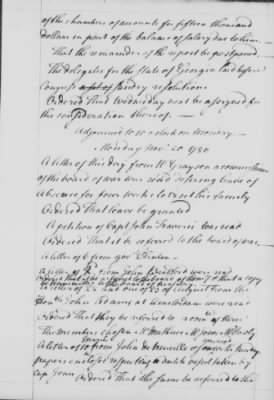 of the chambers of accounts for fifteen thousand
dollars in part of the balance of salary due to him.
That the remainder of the report be postponed.
The delegates for the State of Georgia laid before
Congress sundry resolutions
Ordered That Wednesday next be assigned for
the consideration thereof.
Adjourned to 10 o'clock on Monday.
Monday Nov. 20 1780
A letter of this day from W Grayson a commissioner
of the board of war was read desiring leave of
absence for four weeks to visit his family
Ordered That leave be granted
A petition of Capt John was read
Ordered That it be referred to the board of war.
A letter of 6 from gov Clinton
A letter of from John Bradford were read
Ordered That the of 7 that a copy
be transmitted to the board of
A letter of 22 and one of 23 of August from the
honble John Adams at Amsterdam were read
Ordered That they be referred to a com of three
The members chosen Mr Mathews Mr Jones Mr
A letter of 10 from John de Neufville & son sundry
papers enclosed respecting a dutch vessel taken by
Cap
Ordered That the same be referred to the